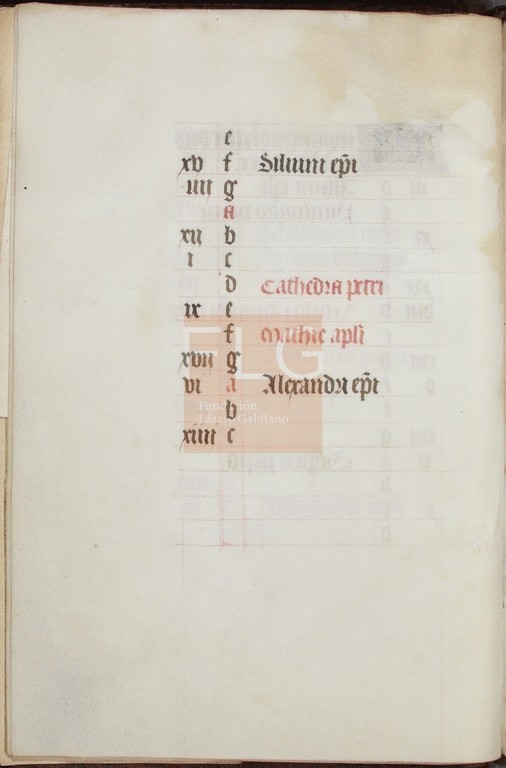 e
xv f Siluini epi
iiii g
a
xii b
i c
d Cathedra petri
ix e
f Mathie apli
xvii g
vi a Alexandri epi
b
xiiii c
FLG
Fundación
Lázaro Galdiano